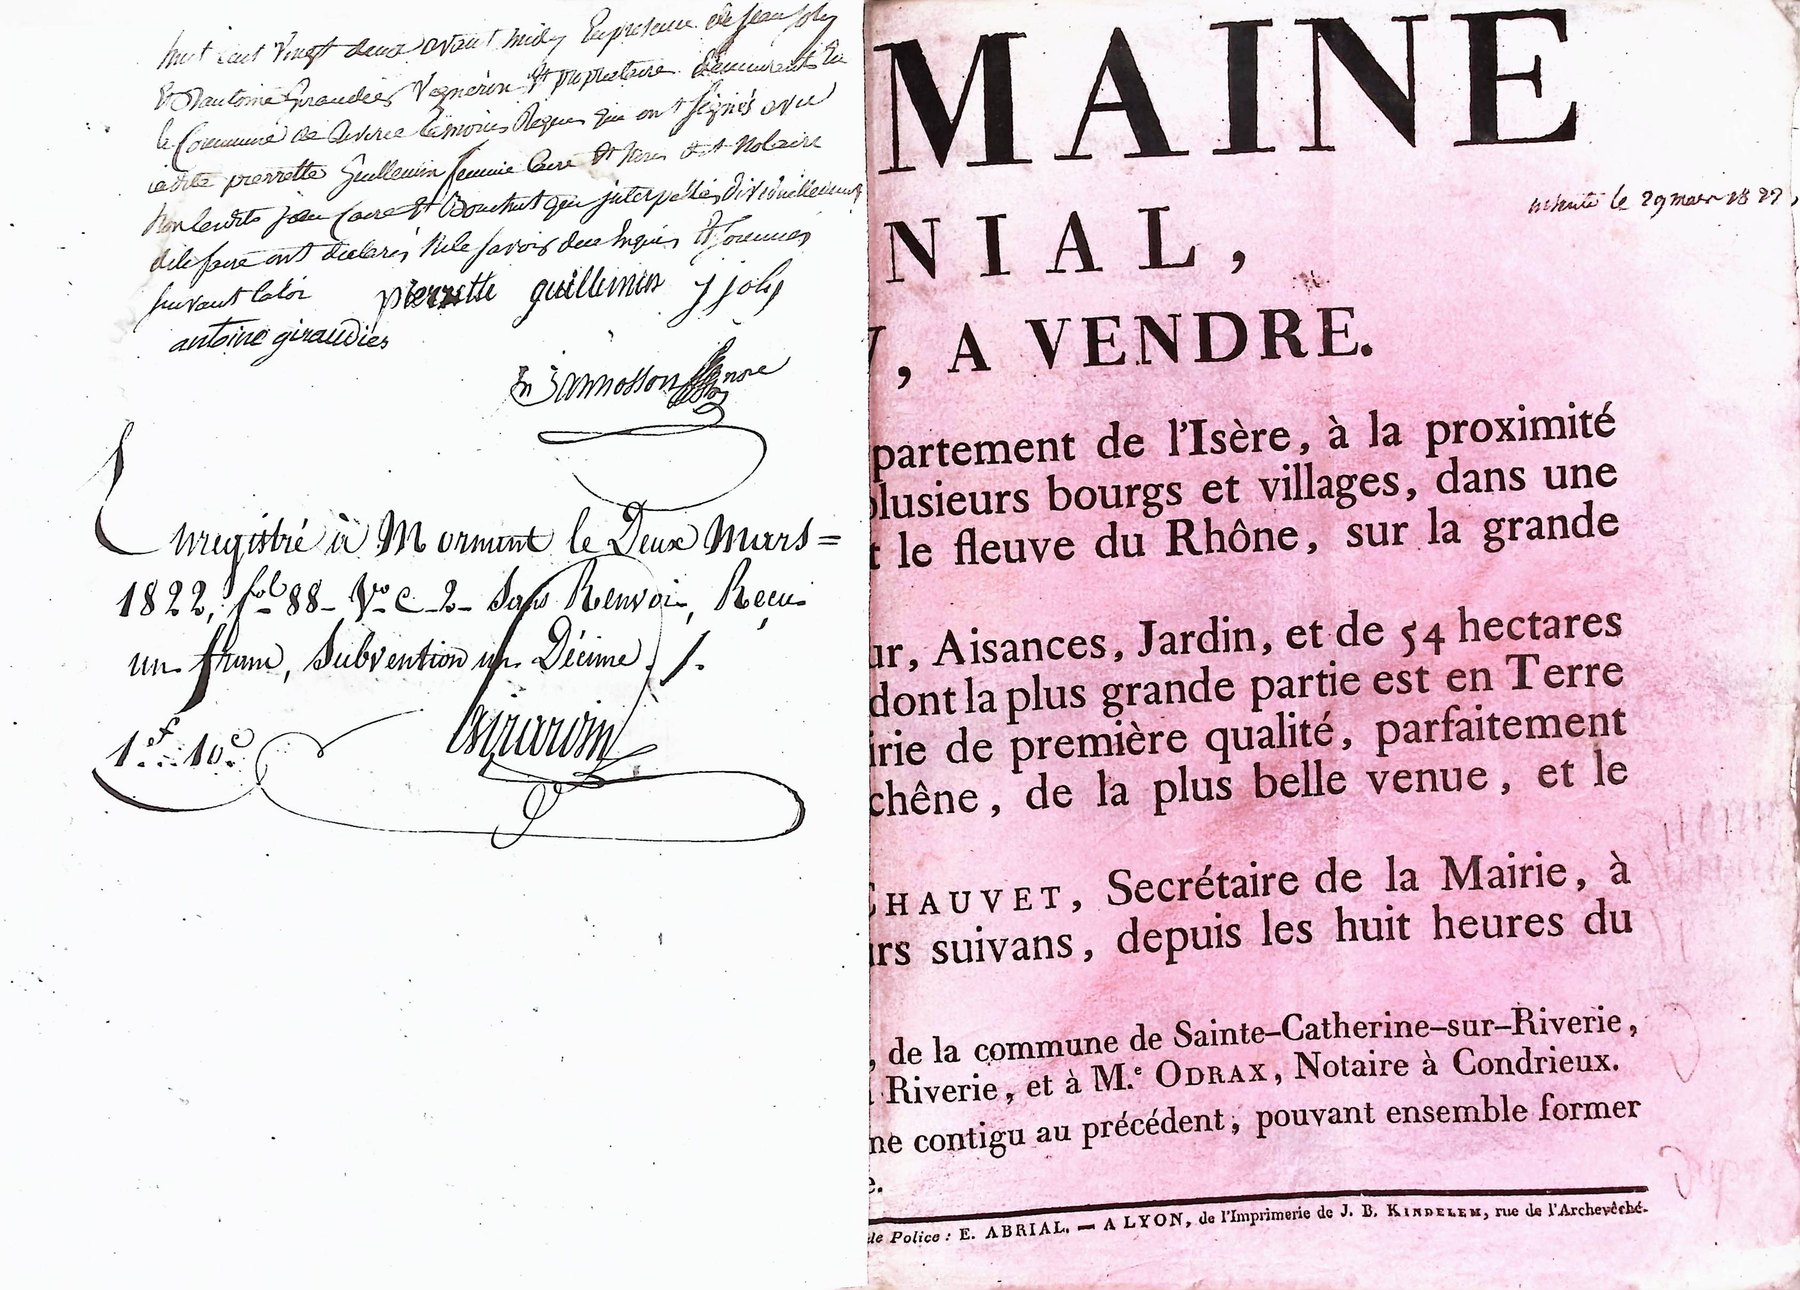 huit cent vingt deux avant midy En presence de jean joly
Et antoine Giraudies Vigneron Et proprietaire demeurants En
la Commune de Riverie temoins Requis qui ont signés avec
ladite pierrette Guillemin femme Caire Et Nous dit Notaire
Non lesdits jean Caire Et Bouchut qui interpellés
de le faire ont declarés Ne le savoir deux Enquis Et Sommés
suivant la loi pierrette guillemin j joly
antoine giraudies
Enregistré à Mornant le Deux Mars
1822, fol 88 Vo c 2 Sans Renvoi, Reçu
un franc, Subvention un Décime ./.
1f 10c Girardin
MAINE
insérée le 29 mars 1827,
NIAL,
, A VENDRE.
partement de l'Isère, à la proximité
plusieurs bourgs et villages, dans une
t le fleuve du Rhône, sur la grande
ur, Aisances, Jardin, et de 54 hectares
dont la plus grande partie est en Terre
irie de première qualité, parfaitement
chêne, de la plus belle venue, et le
CHAUVET, Secrétaire de la Mairie, à
urs suivans, depuis les huit heures du
, de la commune de Sainte-Catherine-sur-Riverie,
Riverie, et à M.e ODRAX, Notaire à Condrieux.
ne contigu au précédent, pouvant ensemble former
e.
de Police : E. ABRIAL. — A LYON, de l'Imprimerie de J. B. KINDELEM, rue de l'Archevêché.